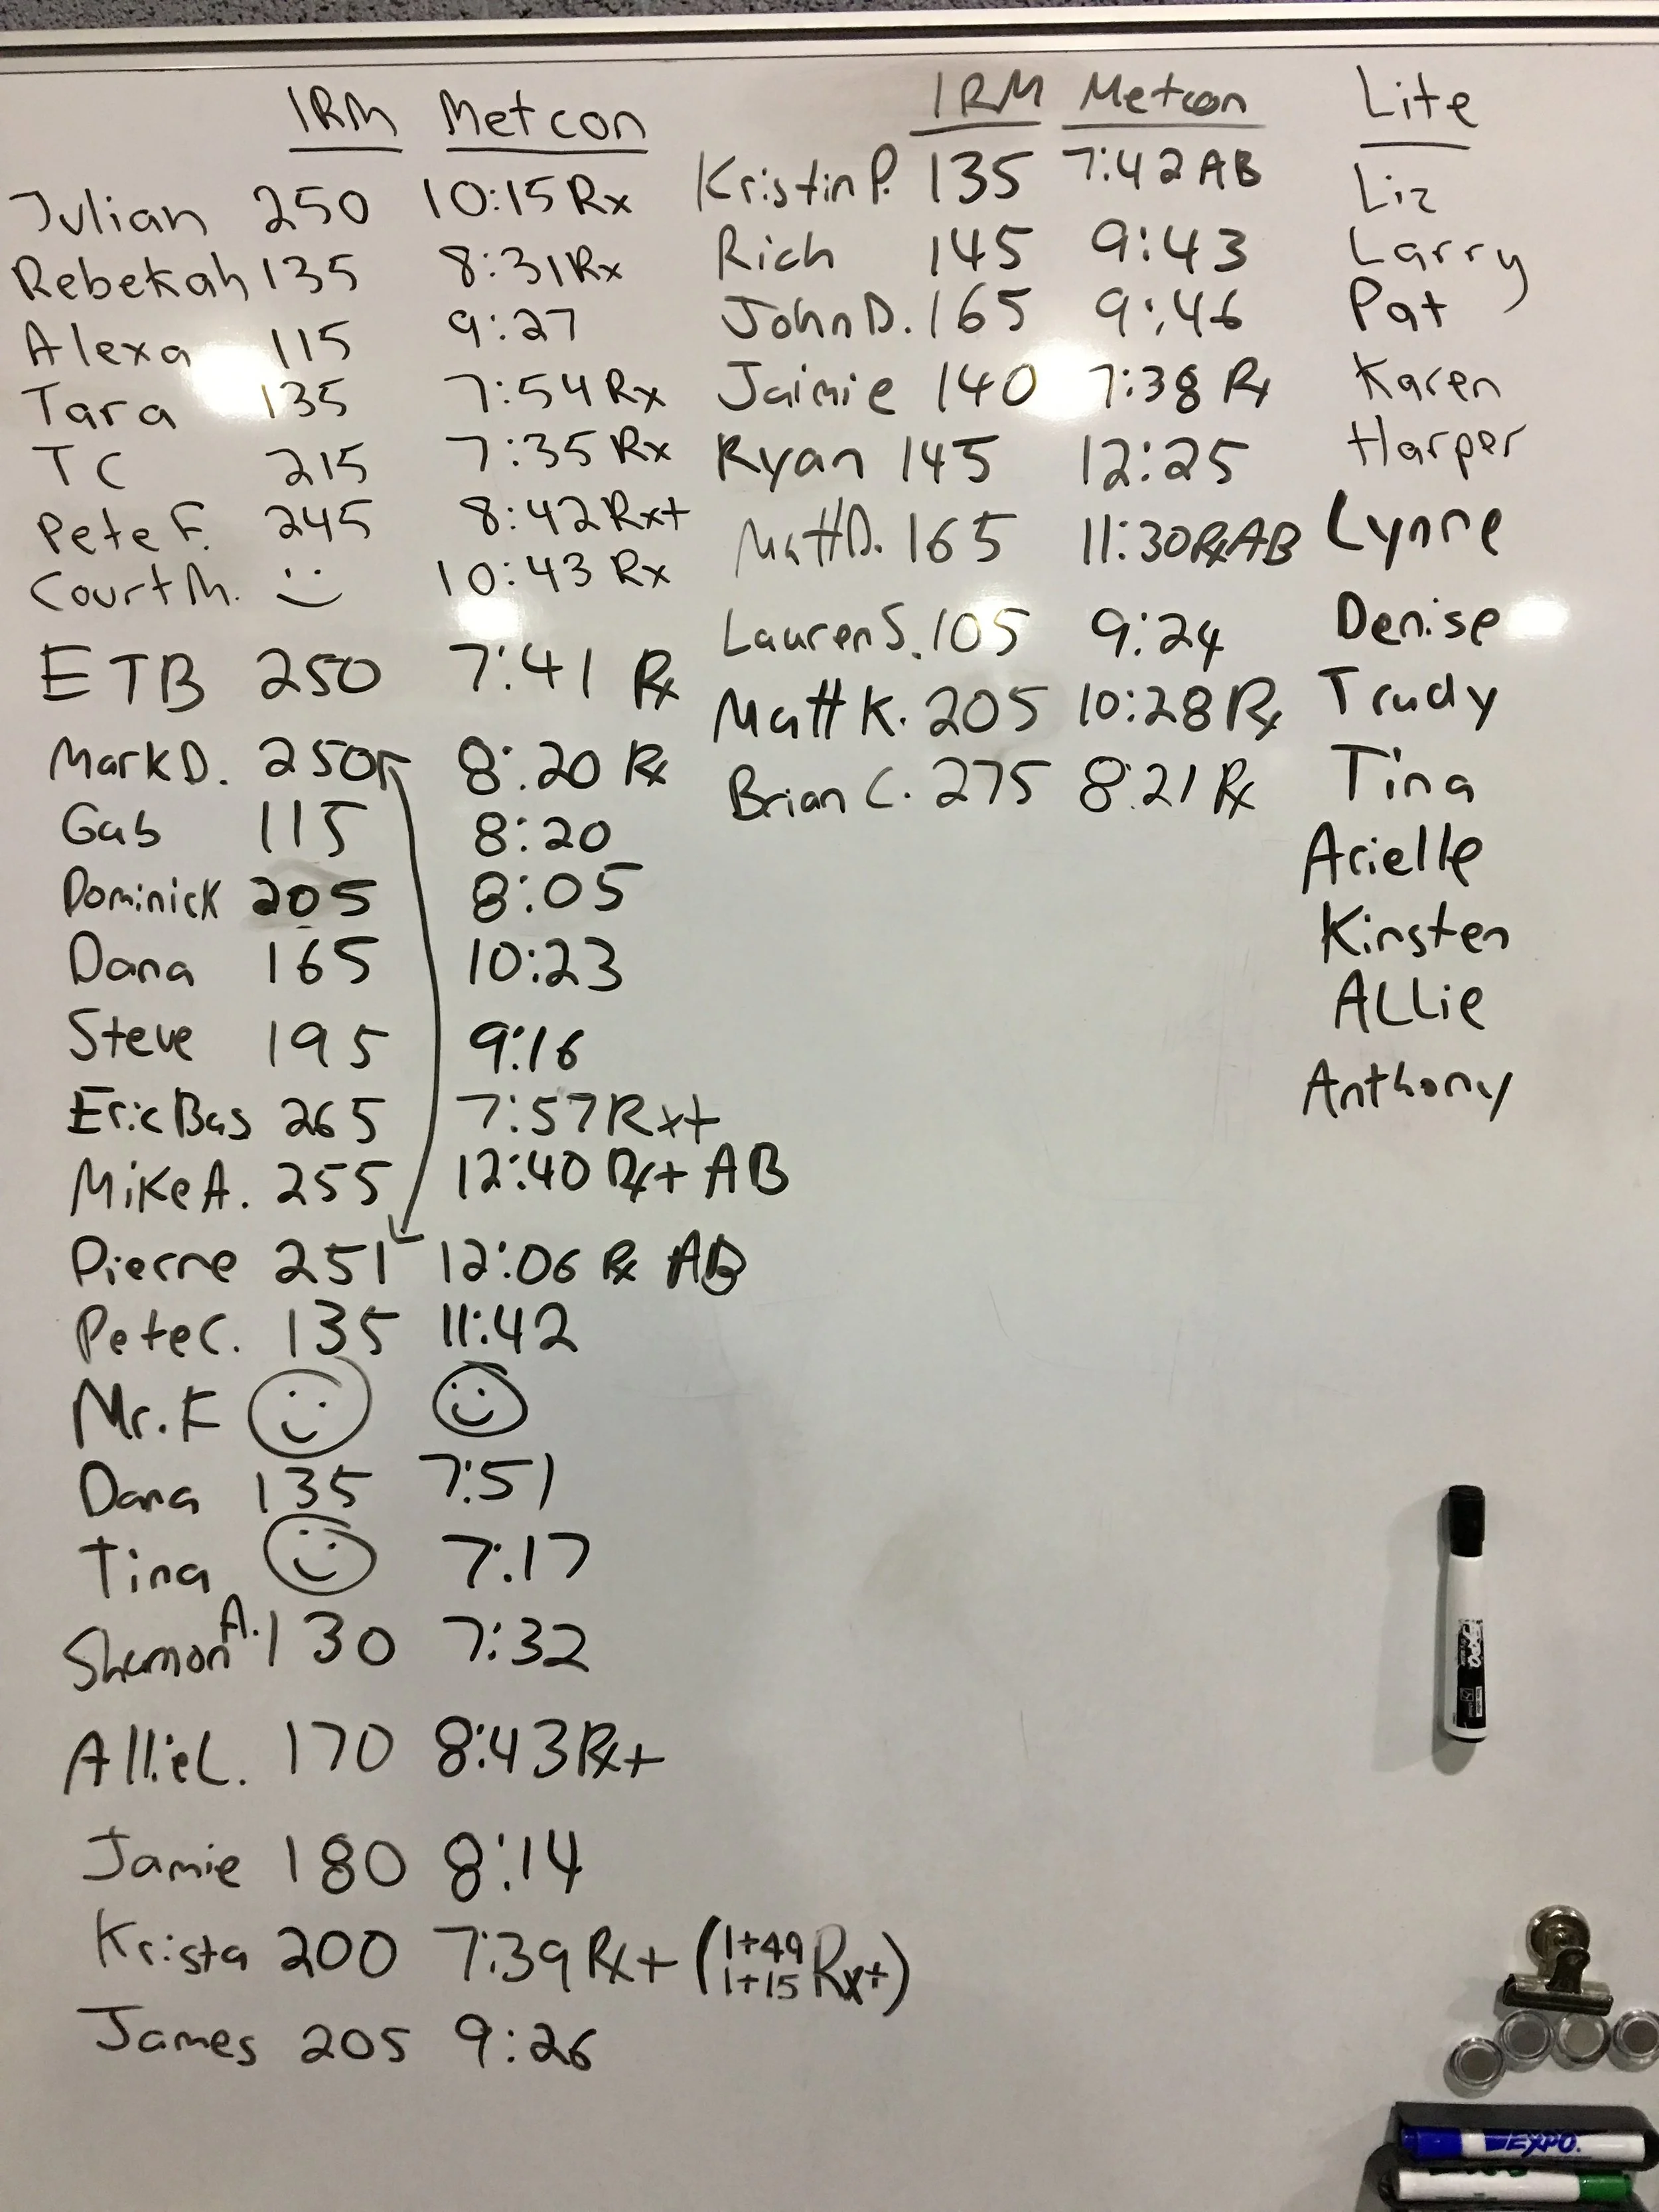 1RM Metcon
Julian 250 10:15 Rx
Rebekah 135 8:31 Rx
Alexa 115 9:27
Tara 135 7:54 Rx
TC 215 7:35 Rx
Pete F. 245 8:42 Rx+
Court M. 10:43 Rx
ETB 250 7:41 Rx
Mark D. 250 8:20 Rx
Gab 115 8:20
Dominick 205 8:05
Dana 165 10:23
Steve 195 9:16
Eric Bas 265 7:57 Rx+
Mike A. 255 12:40 Rx+ AB
Pierre 251 12:06 Rx AB
Pete C. 135 11:42
Mr. F
Dana 135 7:51
Tina 7:17
Shamon A. 130 7:32
Allie L. 170 8:43 Rx+
Jamie 180 8:14
Krista 200 7:39 Rx+ (1+49 1+15 Rx+)
James 205 9:26
1RM Metcon
Kristin P. 135 7:42 AB
Rich 145 9:43
John D. 165 9:46
Jaimie 140 7:38 Rx
Ryan 145 12:25
Matt D. 165 11:30 Rx AB
Lauren S. 105 9:24
Matt K. 205 10:28 Rx
Brian C. 275 8:21 Rx
Lite
Liz
Larry
Pat
Karen
Harper
Lynne
Denise
Trudy
Tina
Arielle
Kirsten
ALLie
Anthony
EXPO
EXPO.